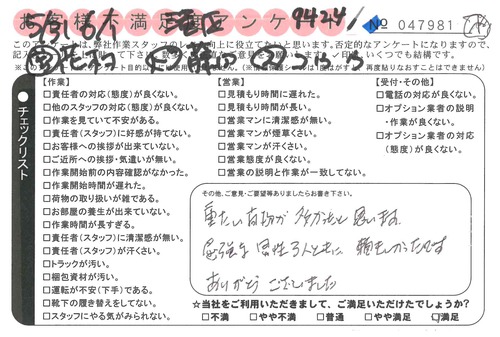 お客様不満足度アンケ
№ 047981
このアンケートは、弊社作業スタッフの
向上に役立てたいと思います。否定的なアンケートになりますので、
いくつでも結構です。
チェックリスト
【作業】
□責任者の対応(態度)が良くない。
□他のスタッフの対応(態度)が良くない。
□作業を見ていて不安がある。
□責任者(スタッフ)に好感が持てない。
□お客様への挨拶が出来ていない。
□ご近所への挨拶・気遣いが無い。
□作業開始前の内容確認がなかった。
□作業開始時間が遅れた。
□荷物の取り扱いが雑である。
□お部屋の養生が出来ていない。
□作業時間が長すぎる。
□責任者(スタッフ)に清潔感が無い。
□責任者(スタッフ)が汗くさい。
□トラックが汚い。
□梱包資材が汚い。
□運転が不安(下手)である。
□靴下の履き替えをしてない。
□スタッフにやる気がみられない。
【営業】
□見積もり時間に遅れた。
□見積もり時間が長い。
□営業マンに清潔感が無い。
□営業マンが煙草くさい。
□営業マンが汗くさい。
□営業態度が良くない。
□営業の説明と作業が一致してない。
【受付・その他】
□電話の対応が良くない。
□オプション業者の説明
・作業が良くない。
□オプション業者の対応
(態度)が良くない。
その他、ご意見・ご要望等ありましたらお書き下さい。
重たい荷物が多かったと思います。
屈強な男性3人ともに頼もしかったです
ありがとうございました
☆当社をご利用いただきまして、ご満足いただけたでしょうか?
□不満 □やや不満 □普通 □やや満足 ☑満足